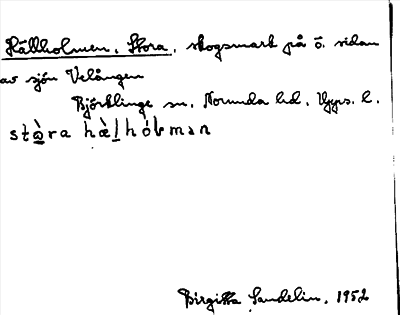 Hällholmen, Stora, skogsmark på ö. sidan
av sjön Velången
Björklinge sn, Norunda hd, Upps. l.
stɑ̀ra hæ̀l hólman
Birgitta Sandelin, 1952